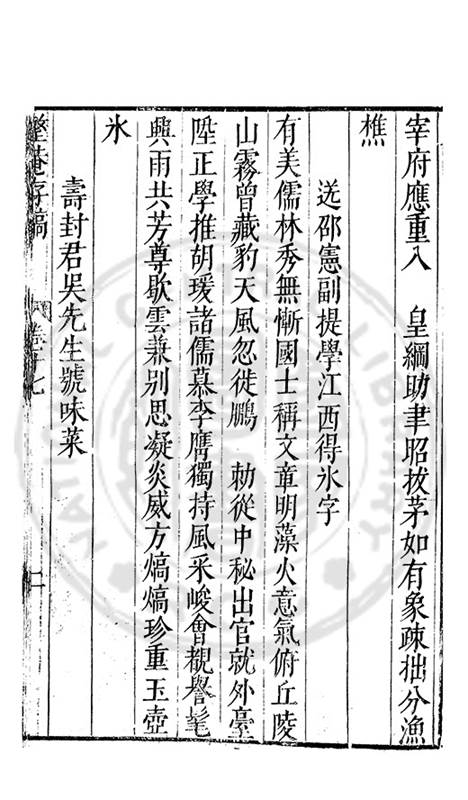 宰府應重入　皇綱助聿昭拔茅如有象疎拙分漁
樵
送邵憲副提學江西得氷字
有美儒林秀無慚國士稱文章明藻火意氣俯丘陵
山霧曾藏豹天風忽徙鵬　勅從中秘出官就外臺
陞正學推胡瑗諸儒慕李膺獨持風采峻會覩譽髦
興雨共芳尊歇雲兼别思凝炎威方熇熇珍重玉壺
氷
壽封君吳先生號味菜
整菴存稿　卷十七　二